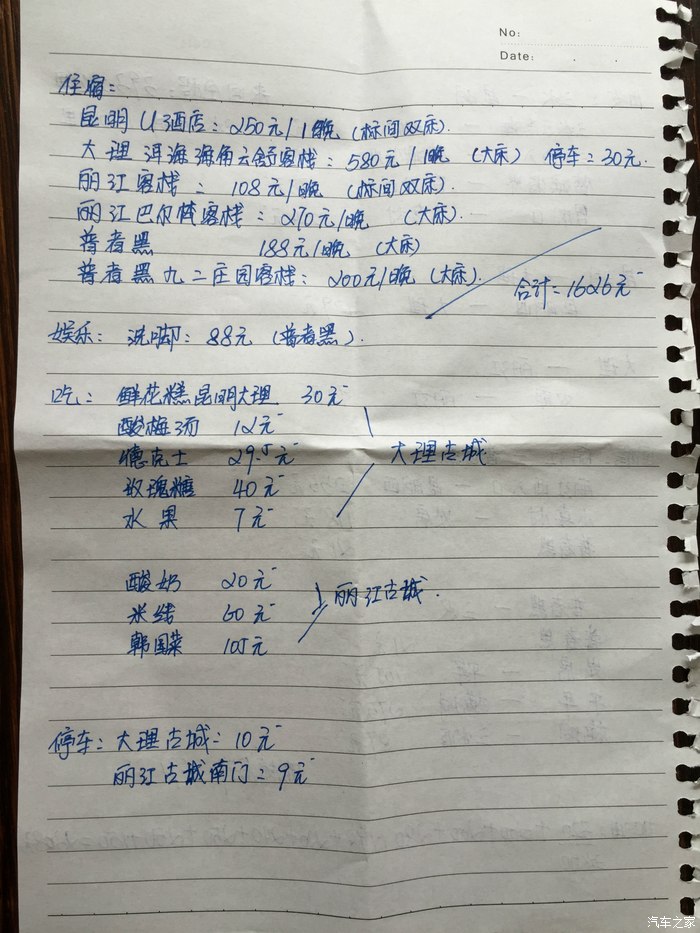 No:
Date:
住宿:
昆明U3酒店: 250元/1晚 (标间双床).
大理 洱海海角云舒客栈: 580元/1晚 (大床) 停车: 30元.
丽江客栈: 108元/1晚 (标间双床).
丽江巴尔梵客栈: 270元/1晚 (大床).
普者黑 188元/1晚 (大床)
普者黑九二庄园客栈: 200元/1晚 (大床).
合计=1626元
娱乐: 洗脚: 88元 (普者黑).
吃: 鲜花糕昆明大理 30元
酸梅汤 12元
德克士 29.5元
大理古城
玫瑰糖 40元
水果 7元
酸奶 20元
丽江古城.
米线 60元
韩国菜 105元
停车: 大理古城: 10元
丽江古城南门: 9元
汽车之家